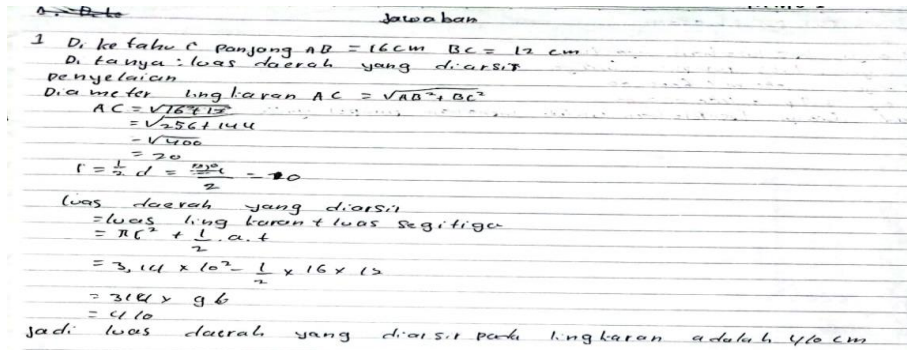 Jawaban
1 Di ketahui Panjang AB = 16 cm BC = 12 cm
Di tanya : luas daerah yang diarsir
Penyelaian
Diameter lingkaran AC = √AB² + BC²
AC = √16² + 12
= √256 + 144
= √400
= 20
r = 1/2 d = /2 = 10
luas daerah yang diarsir
= luas lingkaran + luas segitiga
= πr² + 1/2 . a . t
= 3,14 × 10² - 1/2 × 16 × 12
= 314 × 96
= 410
Jadi luas daerah yang diarsir pada lingkaran adalah 410 cm